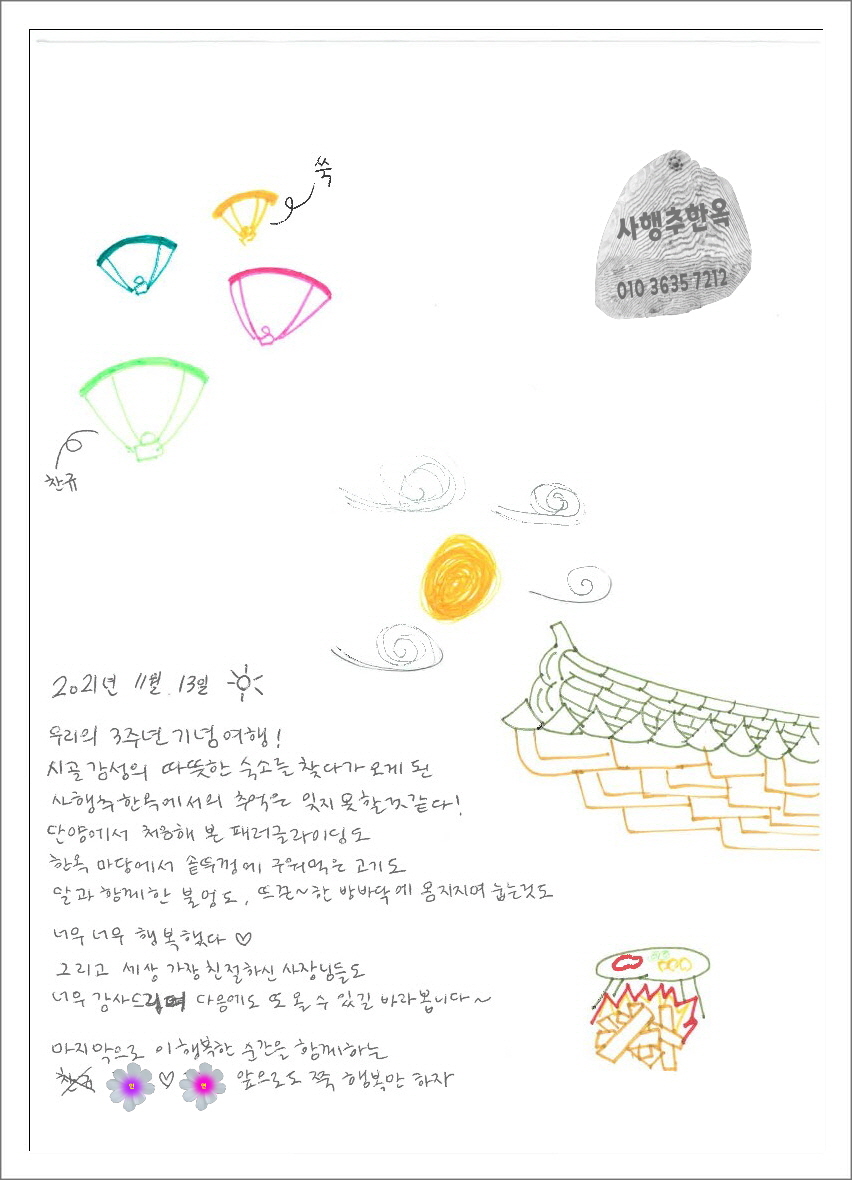 쑥
사행추한옥
010 3635 7212
찬규
2021년 11월 13일
우리의 3주년 기념여행!
시골 감성의 따뜻한 숙소를 찾다가 오게 된
사행추한옥에서의 추억은 잊지 못할것같다!
단양에서 처음해 본 패러글라이딩도
한옥 마당에서 솥뚜껑에 구워먹은 고기도
달과 함께한 불멍도, 뜨끈~한 방바닥에 옴지지며 눕는것도
너무 너무 행복했다 ♡
그리고 세상 가장 친절하신 사장님들도
너무 감사드리며 다음에도 또 올 수 있길 바라봅니다~
마지막으로 이 행복한 순간을 함께하는
민 ♡ 연 앞으로도 쭉 행복만 하자